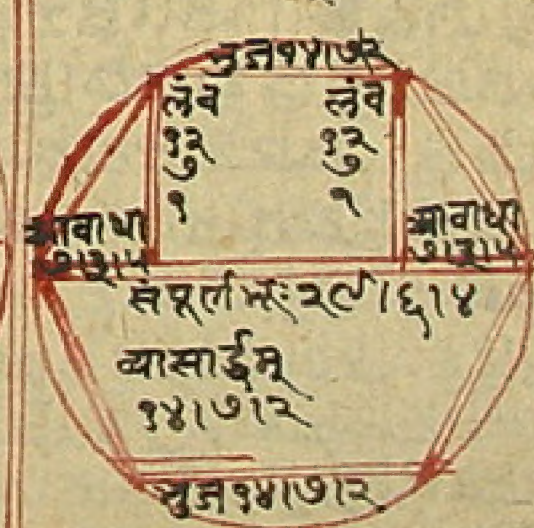 भुज१४।७।२
लंव
१२
७
१
लंव
१२
७
१
आवाधा
७।३।५
आवाधा
७।३।५
संपूर्णभूः२९।६।४
व्यासार्द्धम्
१४।७।२
भुज१४।७।२